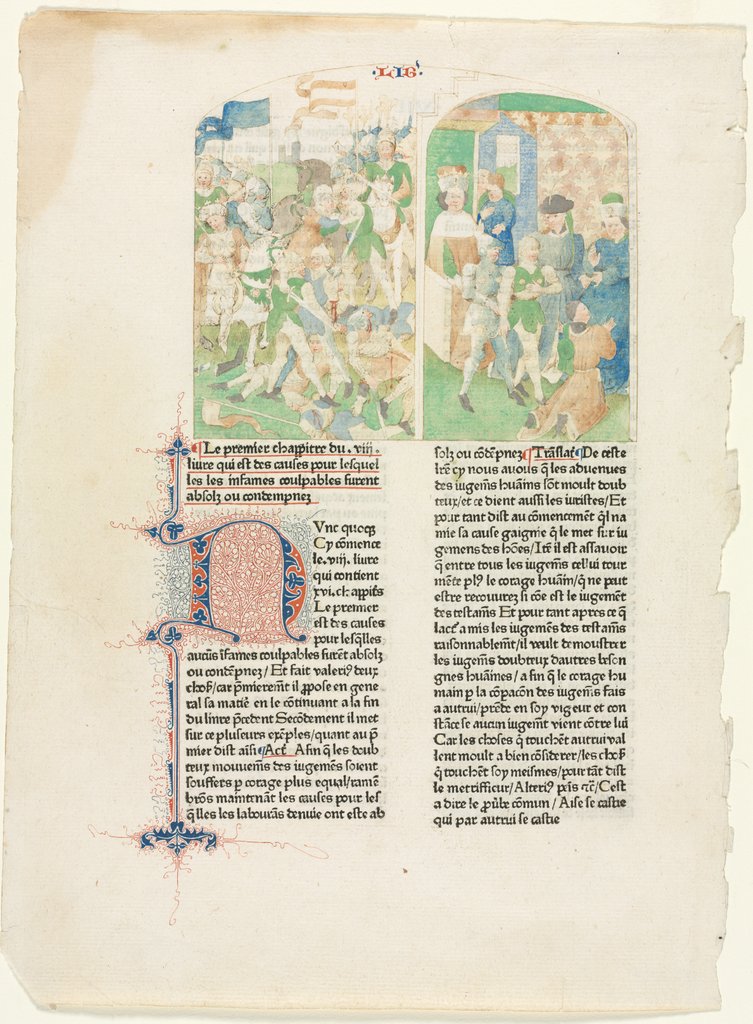 LIG
¶Le premier chappitre du . viij .
liure qui est des causes pour lesquel
les les infames coulpables furent
absolz ou contempnez
Vnc quecq̄
Cy cōmence
le .viij. liure
qui contient
xvi. chappitꝭ
Le premier
est des causes
pour lesq̄lles
aucūs īfames coulpables furēt absolz
ou condēpnez / Et fait valeriꝰ deux
choẜ / car p̄mieremt̄ il ꝓpose en gene
ral sa matiē en le cōtinuant a la fin
du liure p̄cedent Secōdement il met
sur ce pluseurs exēples / quant au p̄
mier dist aīsi ¶Act̄ Afin q̄ les doub
teux mouuem̄s des iugemēs soient
souffers p corage plus equal / ramē
brōs maintenāt les causes pour les
q̄lles les labourās denuie ont este ab
solz ou cōdēpnez ¶Traslat̄ ¶De ceste
lr̄e cy nous auōs q̄ les aduenues
des iugem̄s huaīns sōt moult doub
teux / et ce dient aussi les iuristes / Et
pour tant dist au cōmencement q̄l na
mie sa cause gaignie q̄ le met sur iu
gemens des hōes / Itē il est assauoir
q̄ entre tous les iugem̄s cel'ui tour
mēte plꝰ le corage huaīn / q̄ ne peut
estre recouurez si cōe est le iugement
des testam̄s Et pour tant apres ce q̄
lact̄ a mis les iugemēs des testam̄s
raisonnablem̄t / il veult demoustrer
les iugem̄s doubteux dautres beson
gnes huaīnes / a fin q̄ le corage hu
main p la cōpacōn des iugem̄s fais
a autrui / prēde en soy vigeur et con
stāce se aucun iugem̄t vient cōtre lui
Car les choses q̄ touchēt autrui val
lent moult a bien cōsiderer / les choẜ
q̄ touchēt soy meismes / pour tāt dist
le metrifficur / Alteriꝰ p̄is &c̄ / Cest
a dire le ꝓūbe cōmun / Aise se castie
qui par autrui se castie